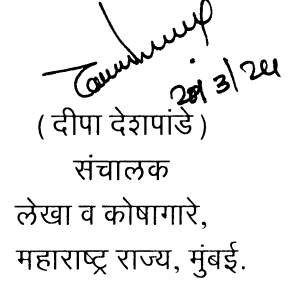 ( दीपा देशपांडे )
संचालक
लेखा व कोषागारे,
महाराष्ट्र राज्य, मुंबई.